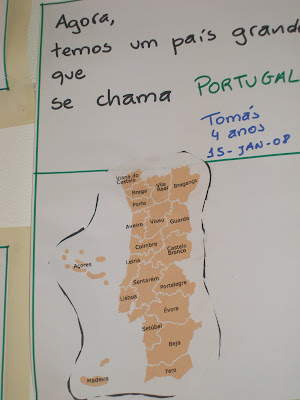 Agora,
temos um país grande
que
se chama PORTUGAL
Tomás
4 anos
15-JAN-08
Viana do
Castelo
Braga
Vila
Real
Bragança
Porto
Aveiro
Viseu
Guarda
Coimbra
Castelo
Branco
Leiria
Açores
Santarém
Portalegre
Lisboa
Évora
Setúbal
Beja
Madeira
Faro